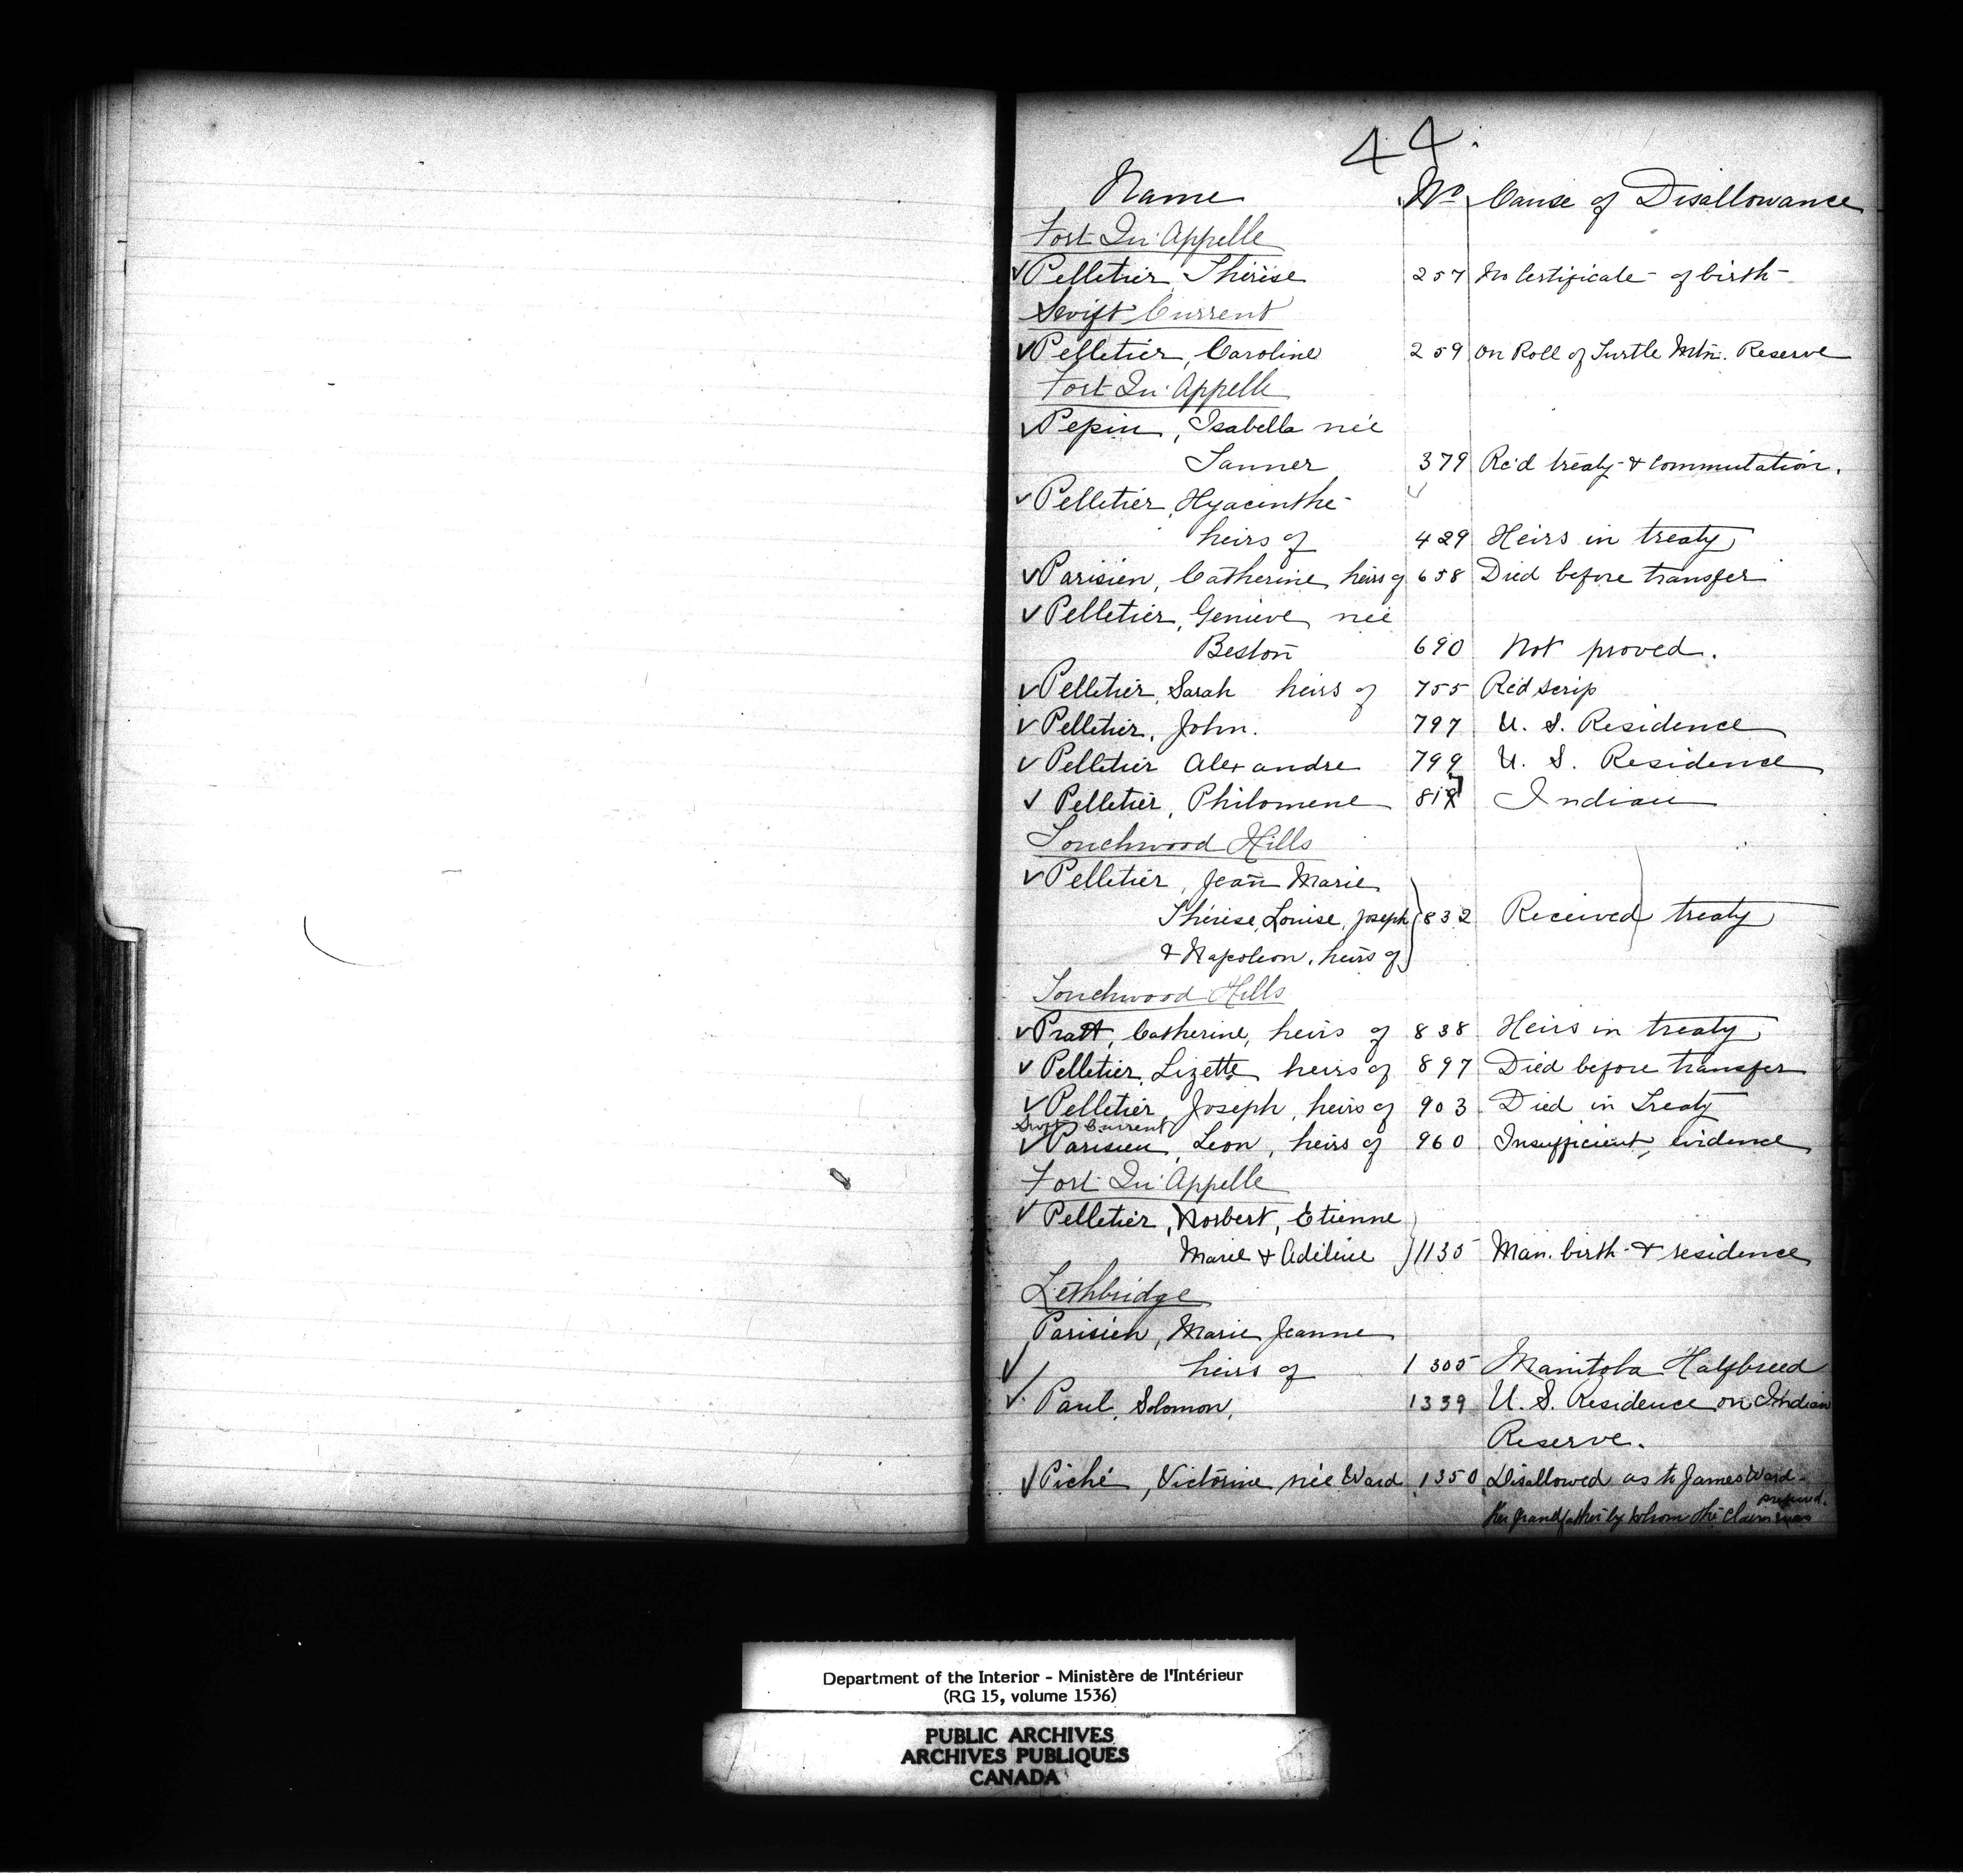 44.
Name No Cause of Disallowance
Fort Qu'Appelle
✓ Pelletier, Thérèse 257 No Certificate of birth
Swift Current
✓ Pelletier, Caroline 259 On Roll of Turtle Mtn. Reserve
Fort Qu'Appelle
✓ Pepin, Isabella née
Tanner 379 Rec'd treaty & commutation.
✓ Pelletier, Hyacinthe
heirs of 429 Heirs in treaty
✓ Parisien, Catherine, heirs of 658 Died before transfer
✓ Pelletier, Genieve née
Beston 690 Not proved.
✓ Pelletier, Sarah heirs of 755 Rec'd scrip
✓ Pelletier, John. 797 U. S. Residence
✓ Pelletier Alexandre 799 U. S. Residence
✓ Pelletier, Philomene 817 Indian
Touchwood Hills
✓ Pelletier, Jean Marie
Thérèse, Louise, Joseph 832 Received treaty
& Napoleon, heirs of
Touchwood Hills
✓ Pratt, Catherine, heirs of 838 Heirs in treaty
✓ Pelletier, Lizette, heirs of 897 Died before transfer
✓ Pelletier, Joseph, heirs of 903 Died in Treaty
Swift Current
✓ Parisien, Leon, heirs of 960 Insufficient evidence
Fort Qu'Appelle
✓ Pelletier, Norbert, Etienne
Marie & Adéline } 1135 Man. birth & residence
Lethbridge
Parisien, Marie Jeanne
✓ heirs of 1305 Manitoba Halfbreed
✓ Paul, Solomon, 1339 U. S. Residence on Indian
Reserve.
✓ Piché, Victorine née Ward 1350 Disallowed as to James Ward
her grandfather by whom the claim was
prefered.
Department of the Interior - Ministère de l'Intérieur
(RG 15, volume 1536)
PUBLIC ARCHIVES
ARCHIVES PUBLIQUES
CANADA